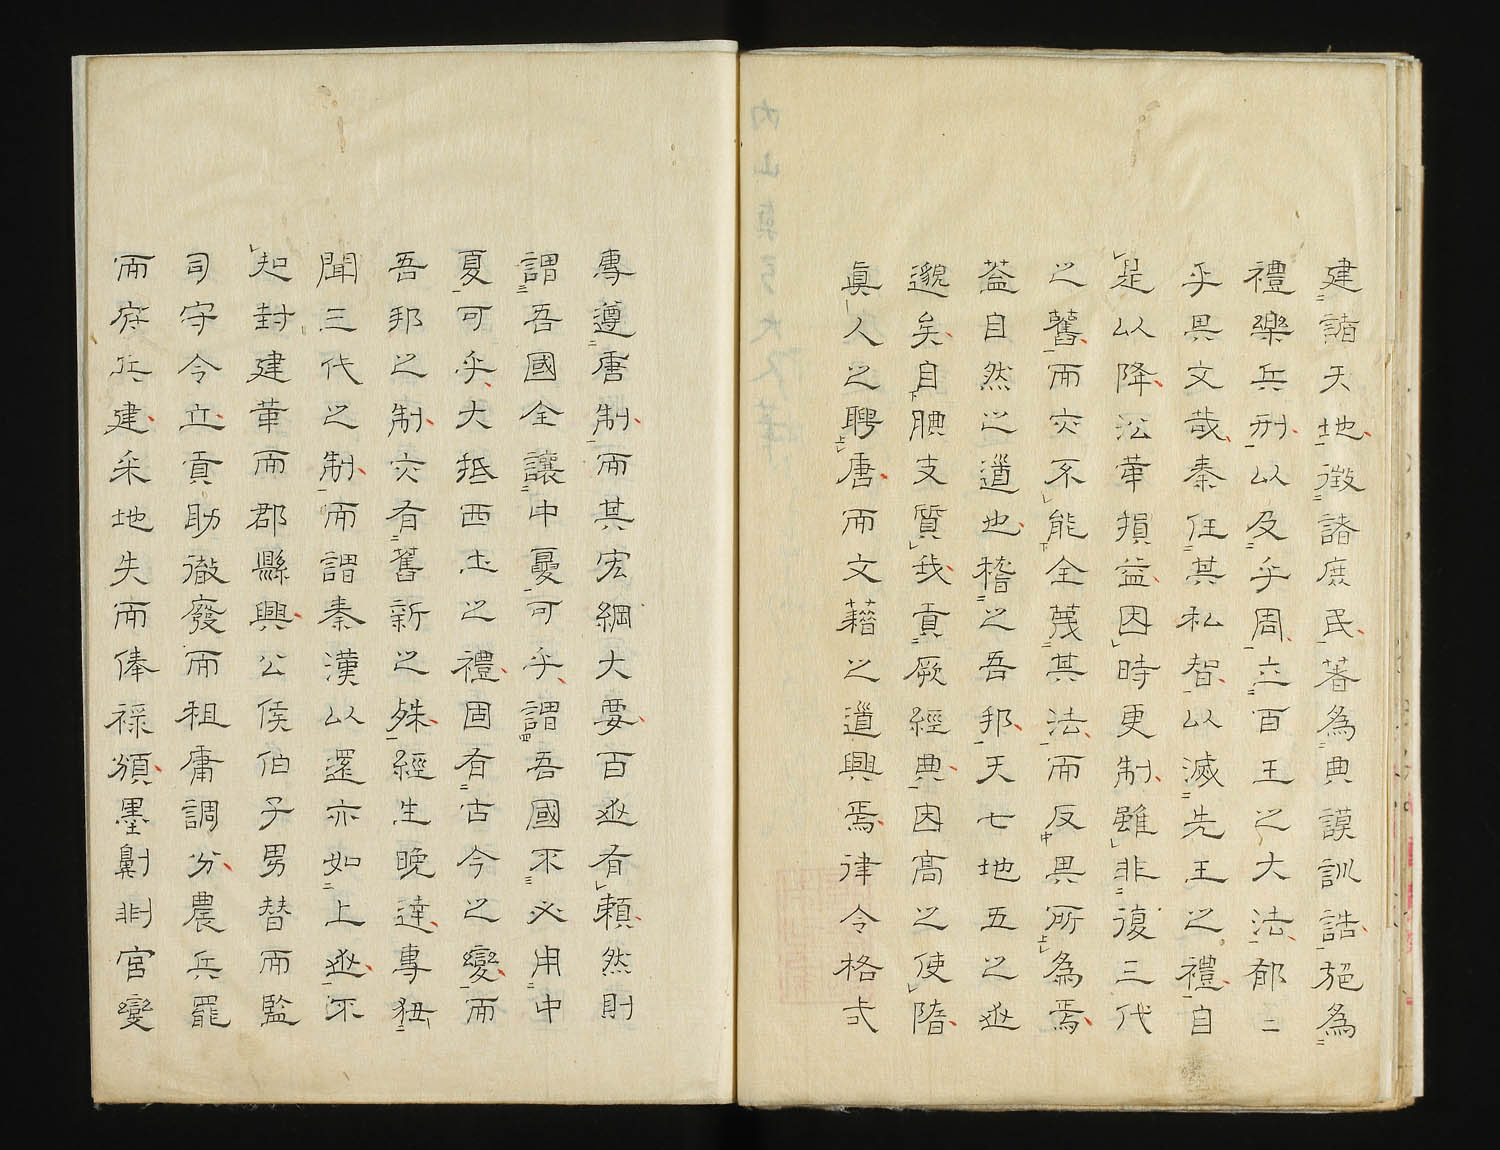 建諸天地徴諸庶民著為典謨訓誥施為
禮樂兵刑以及乎周立百王之大法郁二
乎其文哉秦任其私智以滅先王之禮自
是以降沿革損益因時更制雖非復三代
之舊而亦不能全蔑其法而反異所為焉
蓋自然之道也稽之吾邦天七地五之世
邈矣自腆支質我貢厥經典因高之使隋
眞人之聘唐而文籍之道興焉律令格式
專遵唐制而其宏綱大要百世有賴然則
謂吾國全讓中夏可乎謂吾國不必用中
夏可乎大抵西土之禮固有古今之變而
吾邦之制亦有舊新之殊經生晚達專狃
聞三代之制而謂秦漢以還亦如上世不
知封建革而郡縣興公侯伯子男替而監
司守令立貢助徹廢而租庸調分農兵罷
而府兵建采地失而俸祿頒墨劓剕宮變